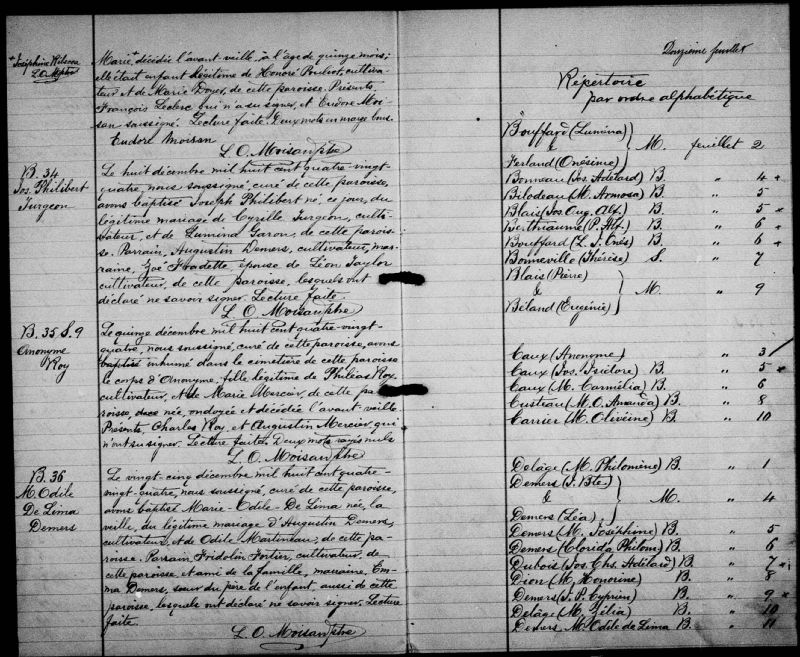 + Joséphine Wilscam
L.O.M.ptre
Marie + décédée l'avant-veille, à l'âge de quinze mois;
elle était enfant légitime de Honoré Pouliot, cultiva-
teur et de Marie Doyer, de cette paroisse. Présents,
François Leclerc qui n'a su signer, et Eudore Moi-
san soussigné. Lecture faite. Deux mots en marge bons.
Eudore Moisan
L. O. Moisan ptre
B. 34
Jos. Philibert
Turgeon
Le huit décembre mil huit cent quatre-vingt-
quatre, nous soussigné, curé de cette paroisse,
avons baptisé Joseph Philibert né, ce jour, du
légitime mariage de Cyrille Turgeon, culti-
vateur, et de Lumina Garon, de cette parois-
se. Parrain, Augustin Demers, cultivateur, mar-
raine, Zoé Nadette, épouse de Léon Taylor
cultivateur, de cette paroisse, lesquels ont
déclaré ne savoir signer. Lecture faite.
L. O. Moisan ptre
B. 35 S. 9
Anonyme
Roy
Le quinze décembre mil huit cent quatre-vingt-
quatre, nous soussigné, curé de cette paroisse, avons
baptisé inhumé dans le cimetière de cette paroisse
le corps d'Anonyme, fille légitime de Philéas Roy,
cultivateur, et de Marie Mercier, de cette pa-
roisse, née, ondoyée et décédée l'avant-veille.
Présents Charles Roy, et Augustin Mercier qui
n'ont su signer. Lecture faite. Deux mots rayés nuls
L. O. Moisan ptre
B. 36
M. Odile
De Lima
Demers
Le vingt-cinq décembre mil huit cent quatre-
vingt-quatre, nous soussigné, curé de cette paroisse,
avons baptisé Marie-Odile-De Lima née, la
veille, du légitime mariage d'Augustin Demers,
cultivateur, et de Odile Martineau, de cette pa-
roisse. Parrain, Fridolin Fortier, cultivateur, de
cette paroisse et ami de la famille, marraine, Em-
ma Demers, sœur du père de l'enfant, aussi de cette
paroisse, lesquels ont déclaré ne savoir signer. Lecture
faite.
L. O. Moisan ptre
Douzième feuillet
Répertoire
par ordre alphabétique
Bouffard (Luména)
& } M. feuillet 2
Ferland (Onésime)
Bonneau (Jos. Adélard) B. " 4 *
Bilodeau (M. Armosa) B. " 5
Blais (Jos. Aug. Alf.) B. " 5 *
Berthiaume (P. Alf.) B. " 6 *
Bouffard (L. J. Onés) B. " 6 *
Bonneville (Thérèse) S. " 7
Blais (Pierre)
& } M. " 9
Béland (Eugénie)
Caux (Anonyme) " 3 /
Caux (Jos. Isidore) B. " 5 *
Caux (M. Carmélia) B. " 6
Custeau (M. O. Amanda) B. " 8
Carrier (M. Olivéine) B. " 10
Delâge (M. Philomène) B. " 1
Demers (J. Bte)
& } M. " 4
Demers (Léa)
Demers (M. Joséphine) B. " 5
Demers (Clorida Philom) B. " 6
Dubois (Jos. Chs. Adélard) B. " 7 *
Dion (M. Honorine) B. " 8
Demers (J. P. Cyprien) B. " 9 *
Delâge (M. Zélia) B. " 10
Demers M. Odile de Lima B. " 11